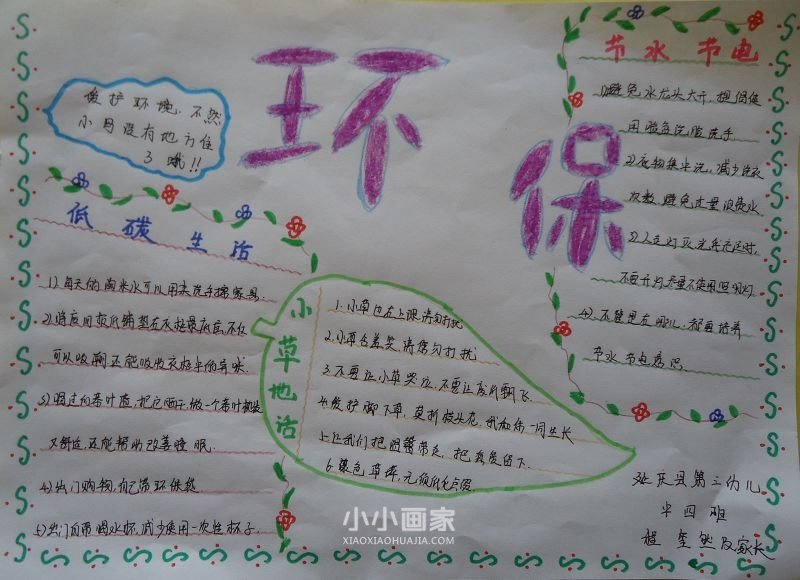 环保
爱护环境,不然
小鸟没有地方住
了哦!!
低碳生活
1)每天的淘米水可以用来洗手擦家具
2)将废旧报纸铺垫在衣橱最底层,不仅
可以吸潮还能吸收衣柜中的异味
3)喝过的茶叶渣,把它晒干,做一个茶叶枕头
又舒适,还能帮助改善睡眠
4)出门购物,自己带环保袋
5)出门自带喝水杯,减少使用一次性杯子
小草地话
1.小草正在上课请勿打扰
2.小草含羞笑,请您勿打扰
3.不要让小草哭泣,不要让废纸飘飞
4.爱护脚下草,莫折枝头花,我和你一同生长
5.让我们把
6.绿色草坪,
节水节电
1)避免水龙头大开,提倡使
用脸盆洗脸洗手
2)衣物集中洗,减少洗衣
次数,避免过量浪费水
3)人走灯灭,光线充足时,
不要开灯,尽量不使用照明灯
4)不管是在哪儿,都要培养
节水节电意识
延庆县第三幼儿
中四班
程 及家长
小小画家
XIAOXIAOHUAJIA.COM